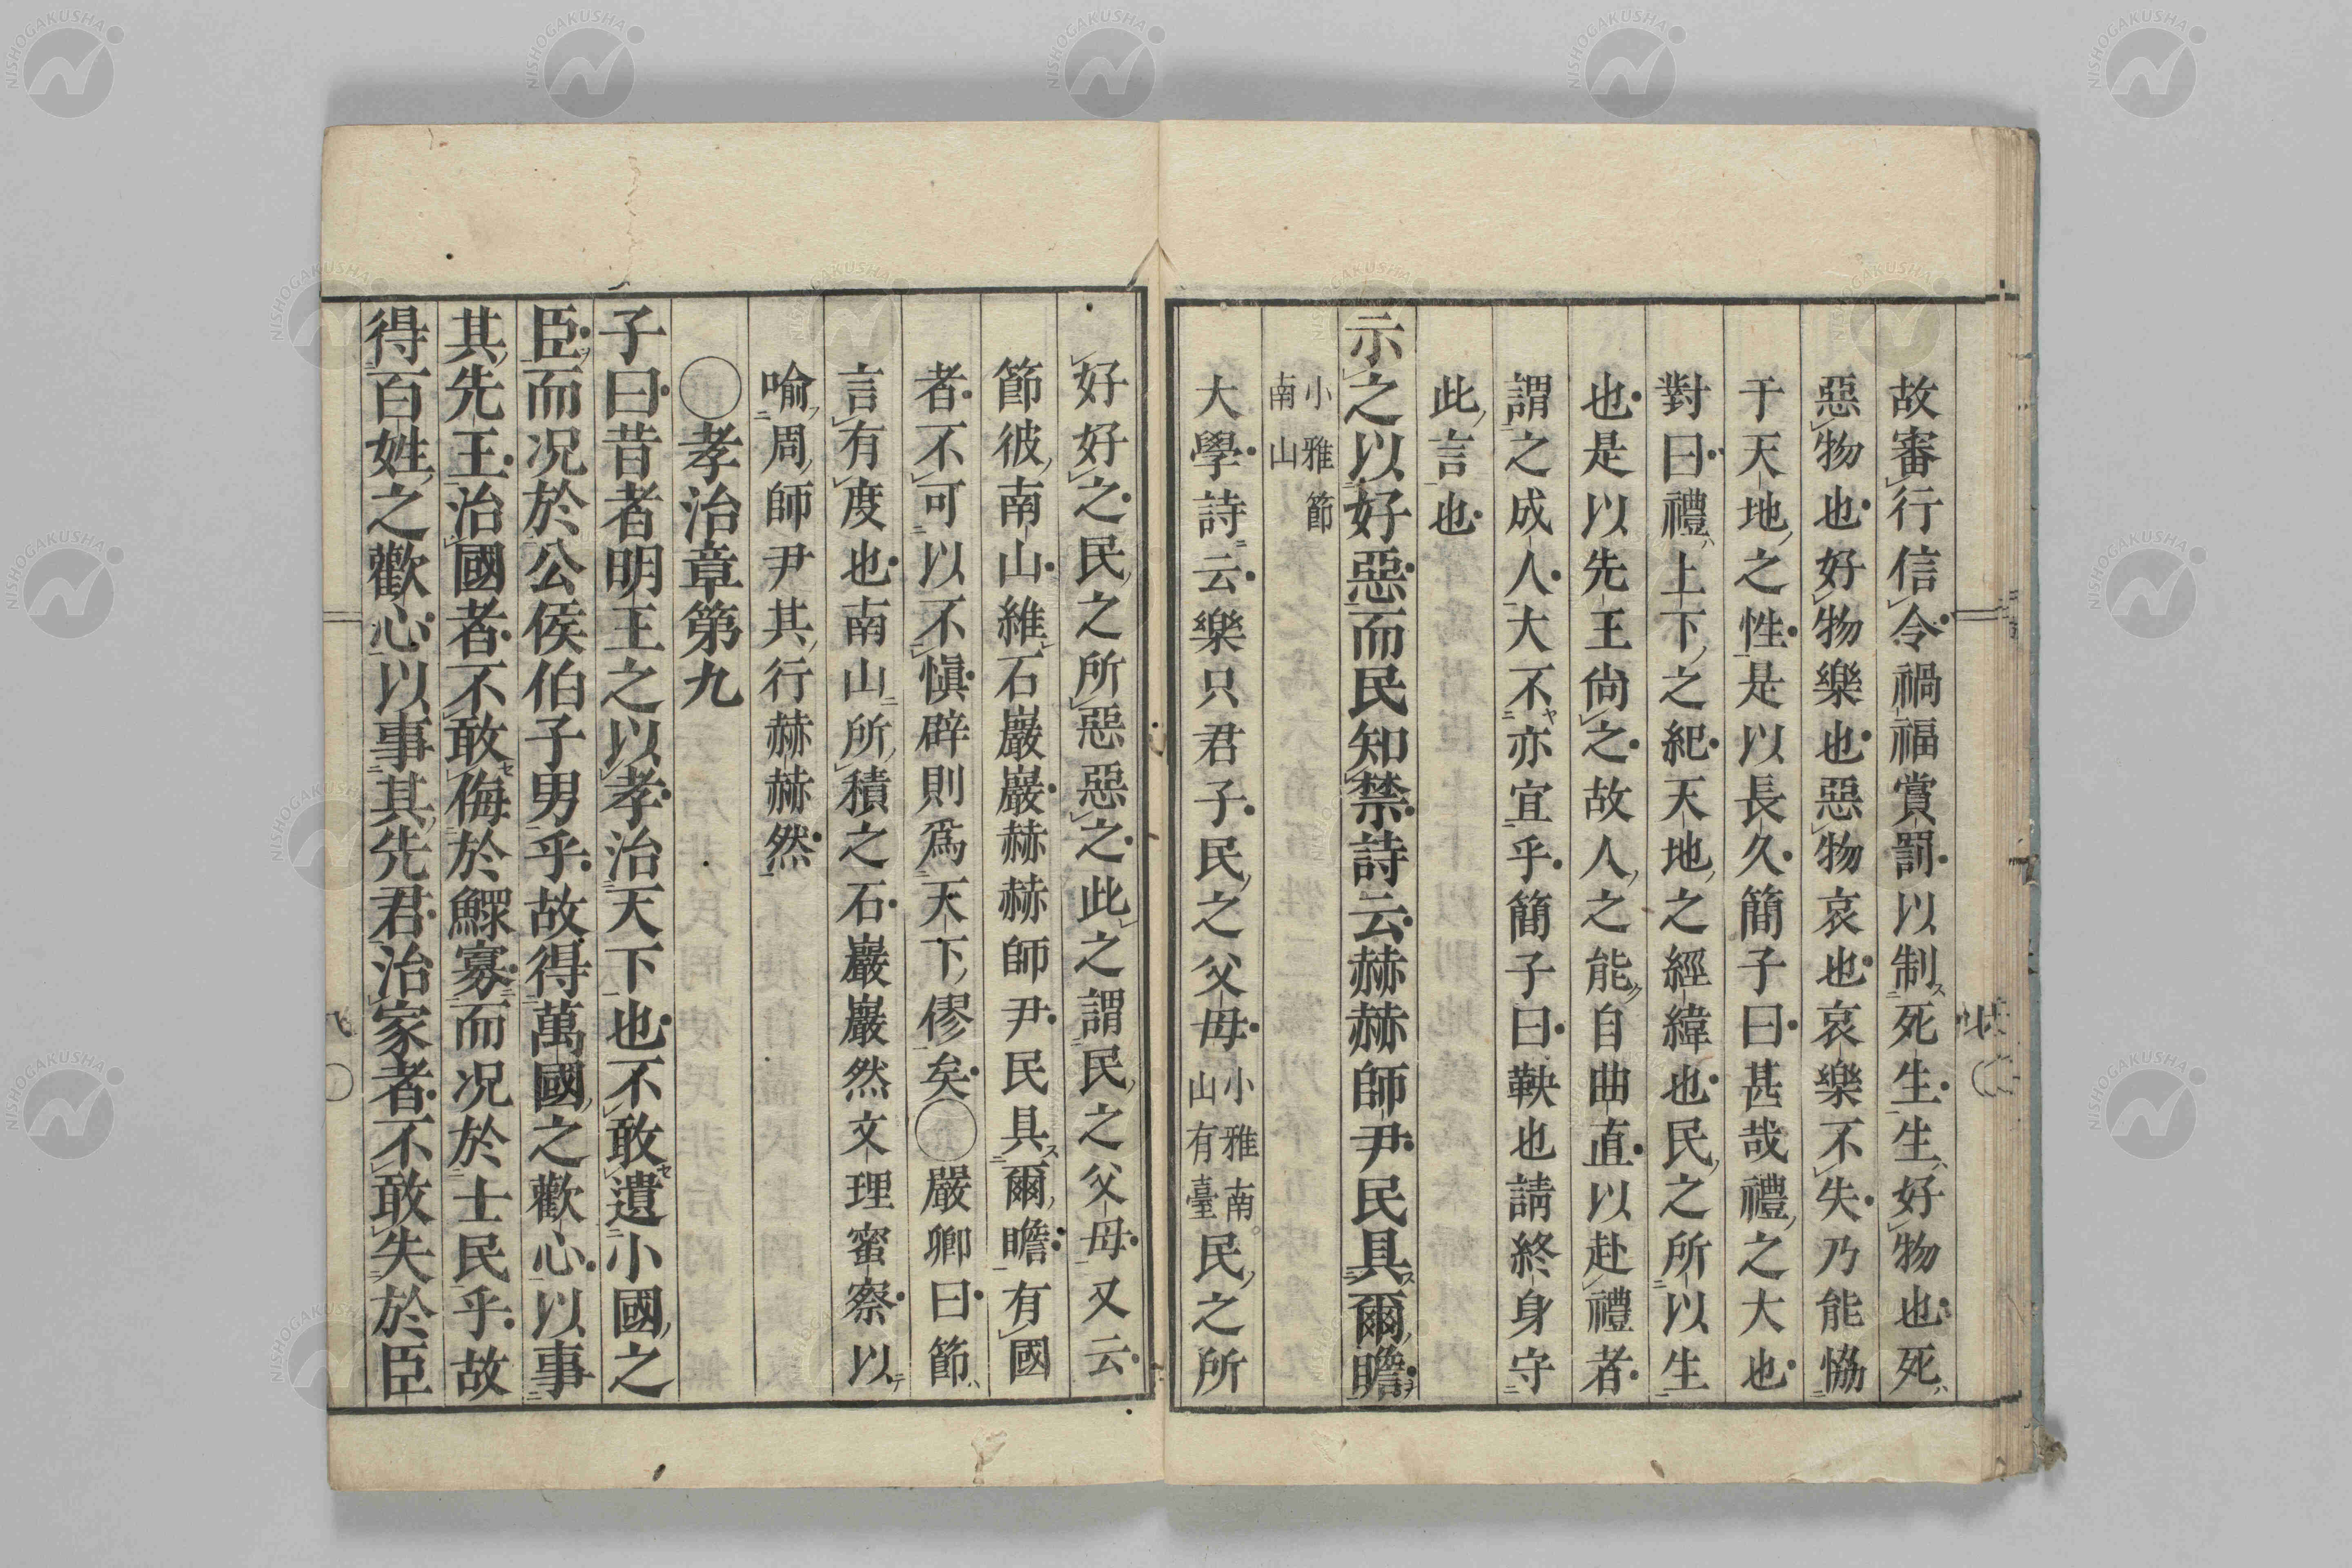 故審行信令禍福賞罰以制死生生好物也死
惡物也好物樂也惡物哀也哀樂不失乃能恊
于天地之性是以長久簡子曰甚哉禮之大也
對曰禮上下之紀天地之經緯也民之所以生
也是以先王尙之故人之能自曲直以赴禮者
謂之成人大不亦宜乎簡子曰鞅也請終身守
此言也
示之以好惡而民知禁詩云赫赫師尹民具爾瞻
小雅節
南山
大學詩云樂只君子民之父母小雅南山有臺民之所
好好之民之所惡惡之此之謂民之父母又云
節彼南山維石巖巖赫赫師尹民具爾瞻有國
者不可以不愼辟則爲天下僇矣○嚴卿曰節
言有度也南山所積之石巖巖然文理蜜察以
喻周師尹其行赫赫然
○孝治章第九
子曰昔者明王之以孝治天下也不敢遺小國之
臣而况於公侯伯子男乎故得萬國之歡心以事
其先王治國者不敢侮於鰥寡而况於士民乎故
得百姓之歡心以事其先君治家者不敢失於臣
NISHOGAKUSHA